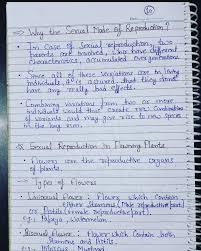 ⇒ Why the Sexual Mode of Reproduction?
• In case of Sexual reproduction, two
parents are involved, who have different
characteristics, accumulated over generations.
• Since all of these variations are in living
individuals, it is assured that they dont
have any really bad effects.
• Combining variations from two or more
individuals would thus create new Combination
of variants and may give rise to new species
in the long run.
Sexual Reproduction in Flowering Plants
• Flowers are the reproductive organs
of plants.
⇒ Types of Flowers
Unisexual Flower: Flower which contain
either Stamens (Male reproductive part)
or Pistils (female reproductive part).
eg: Papaya, Watermelon
Bisexual Flower: Flower which contain both
Stamens and Pistils.
eg: Hibiscus, Mustard